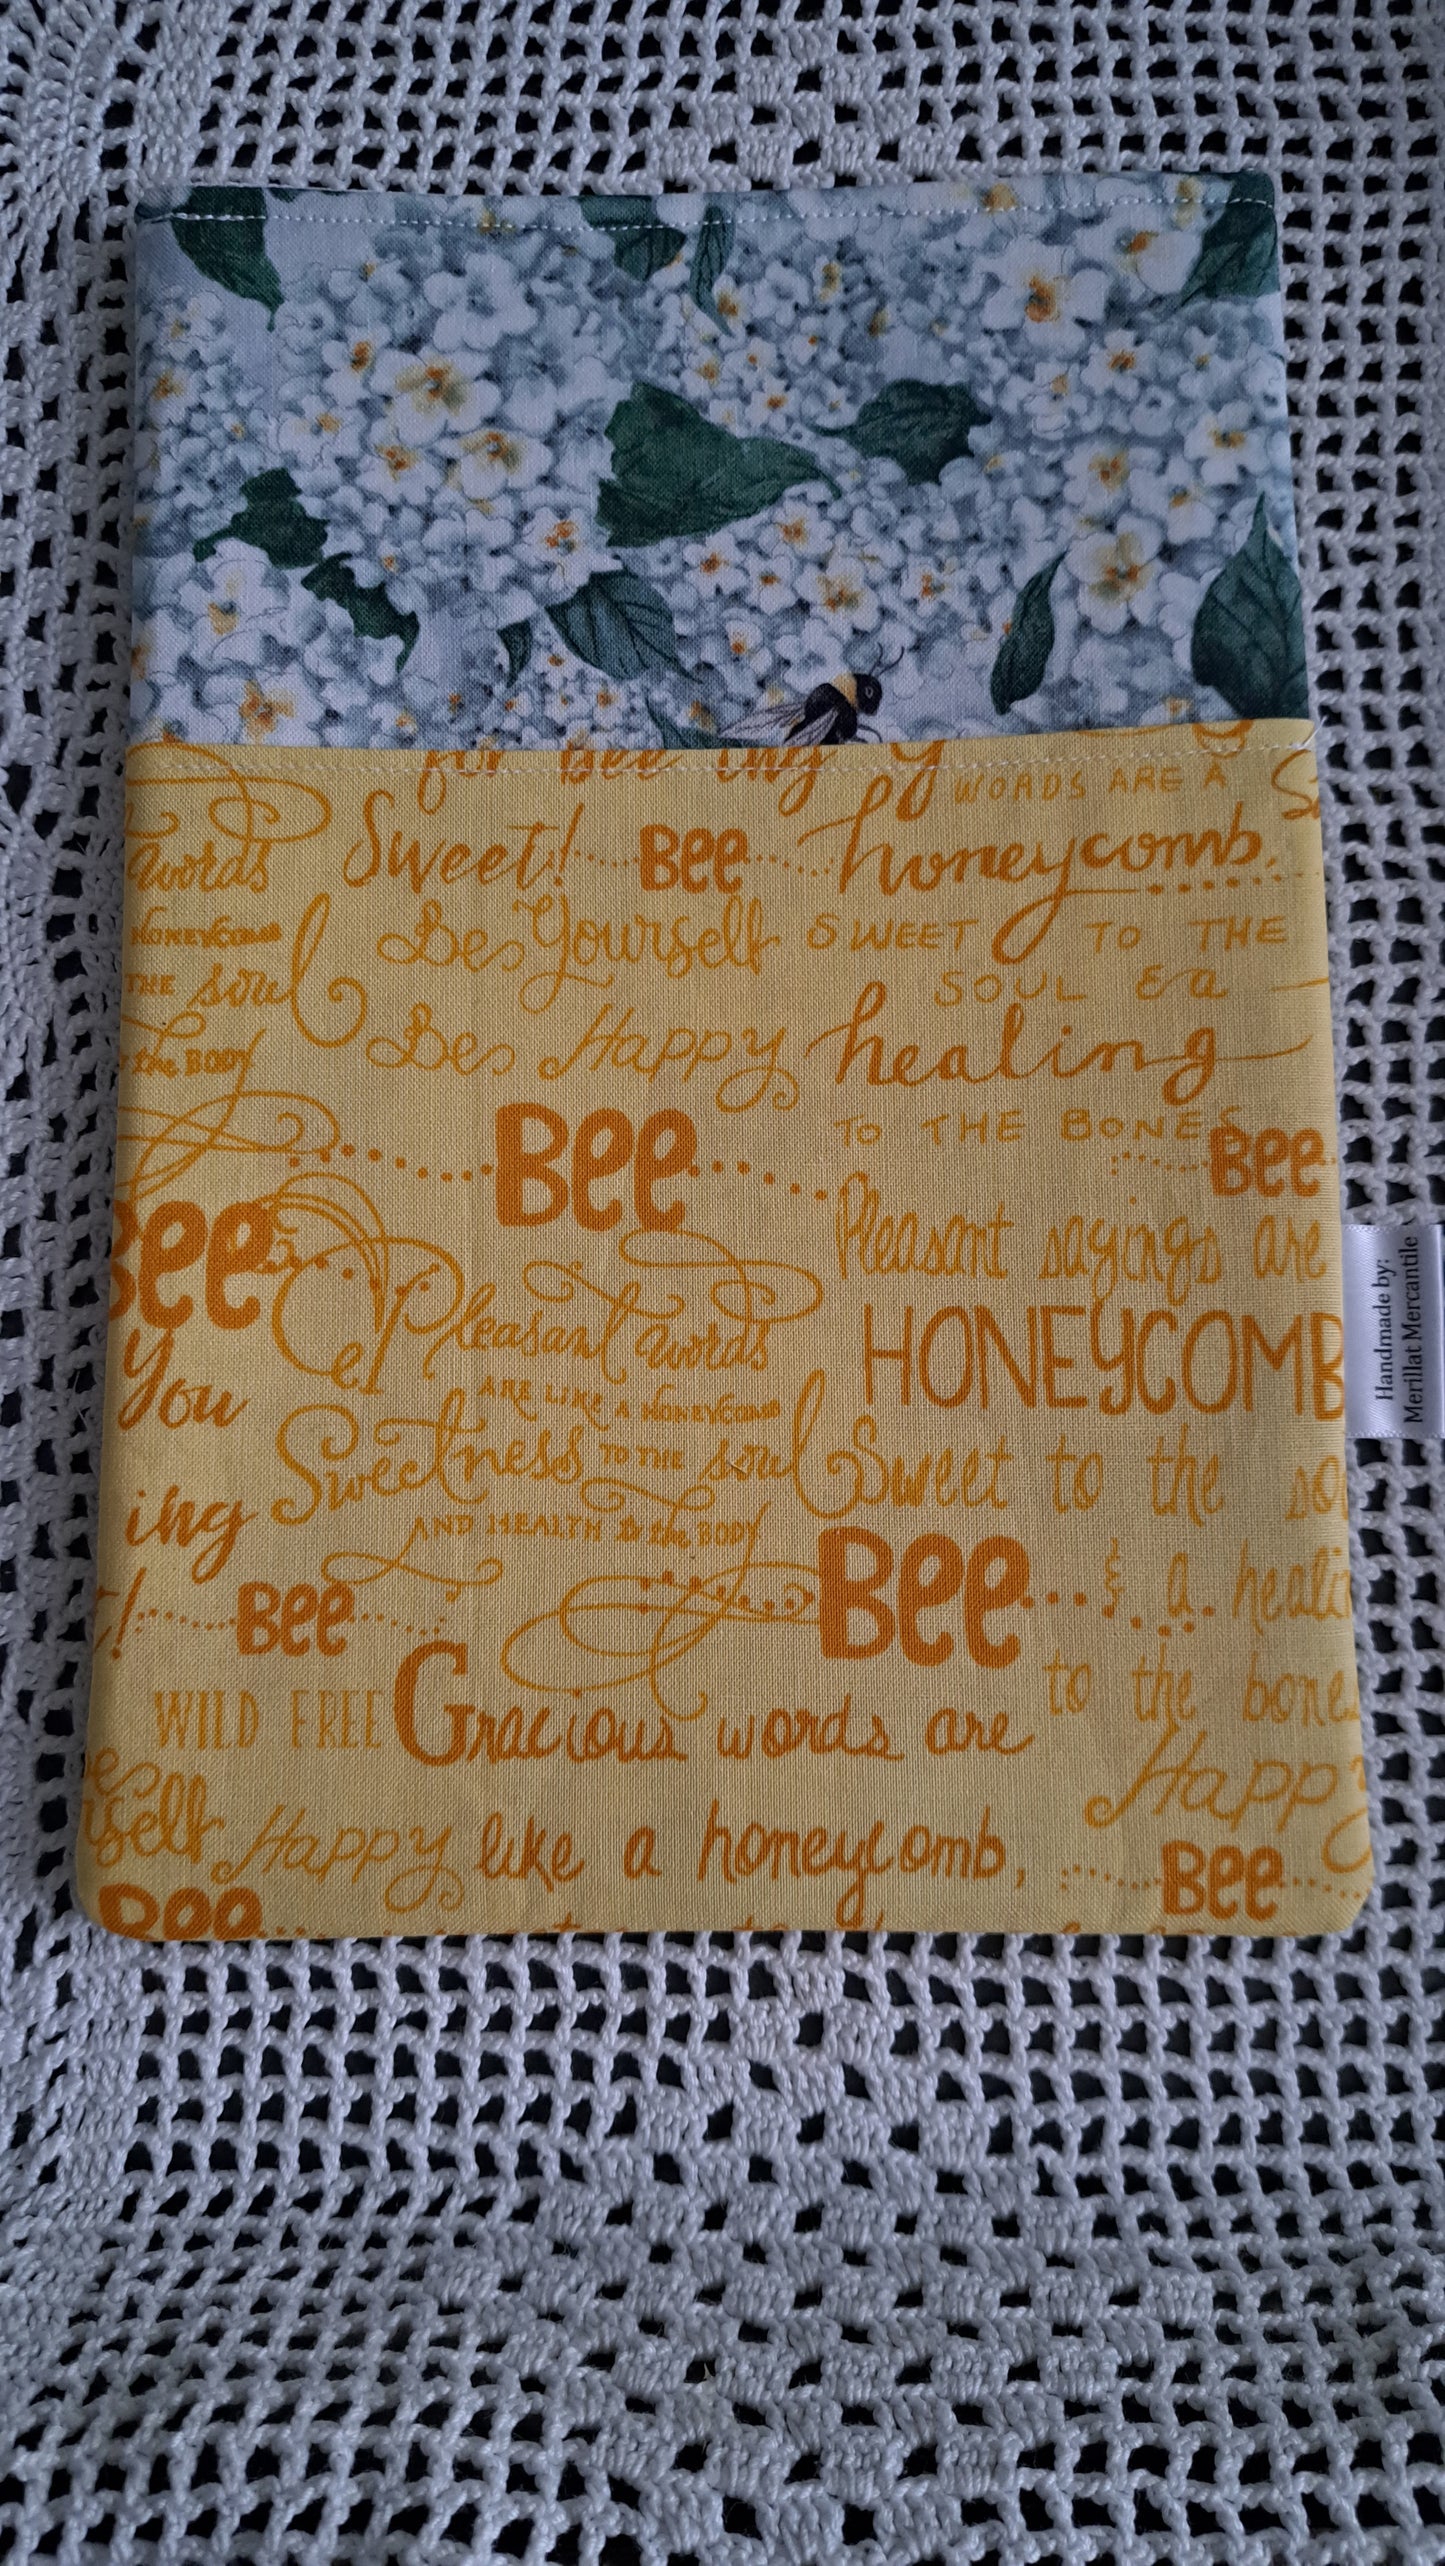 for bee ing y
WORDS ARE A
words Sweet! Bee honeycomb.
HONEYCOMB Be Yourself SWEET TO THE
THE soul SOUL & a
Be Happy healing
the BODY
TO THE BONES
Bee Bee
Bee Pleasant sayings are
Pleasant words HONEYCOMB
you ARE LIKE A HONEYCOMB
Sweetness TO THE soul Sweet to the so
ing AND HEALTH to the BODY
Bee & a heali
Bee
to the bones
WILD FREE Gracious words are
Happ
rself Happy like a honeycomb,
Bee
Bee
Handmade by:
Merillat Mercantile